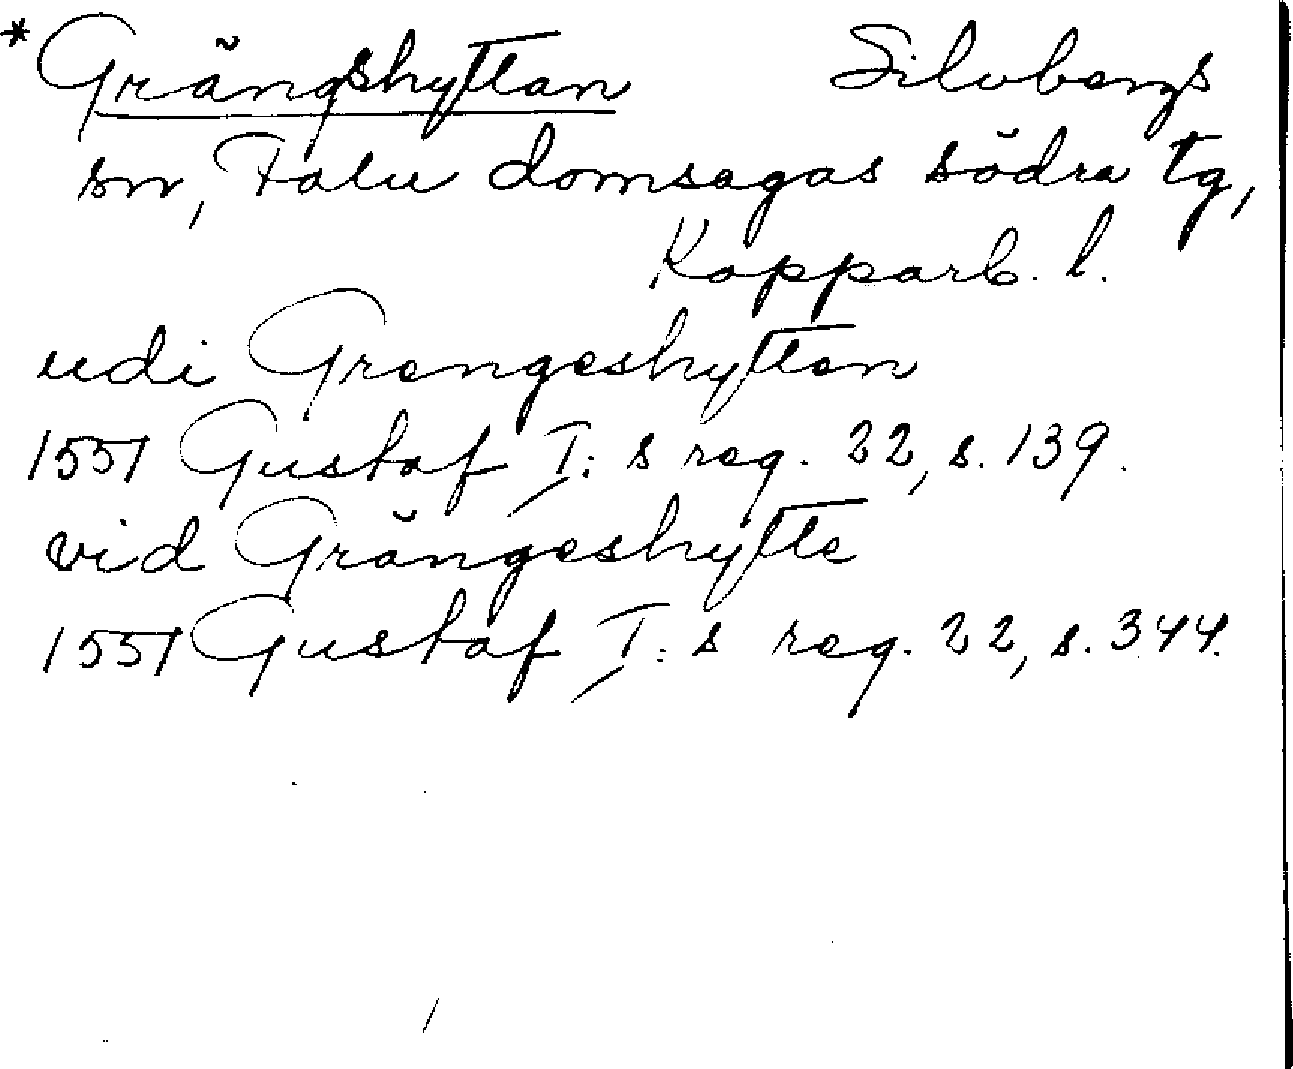 *Grängshyttan Silvbergs
sn, Falu domsagas södra tg,
Kopparb. l.
udi Grengeshytten
1551 Gustaf I:s reg. 22, s. 139.
vid Grängeshytte
1551 Gustaf I:s reg. 22, s. 344.